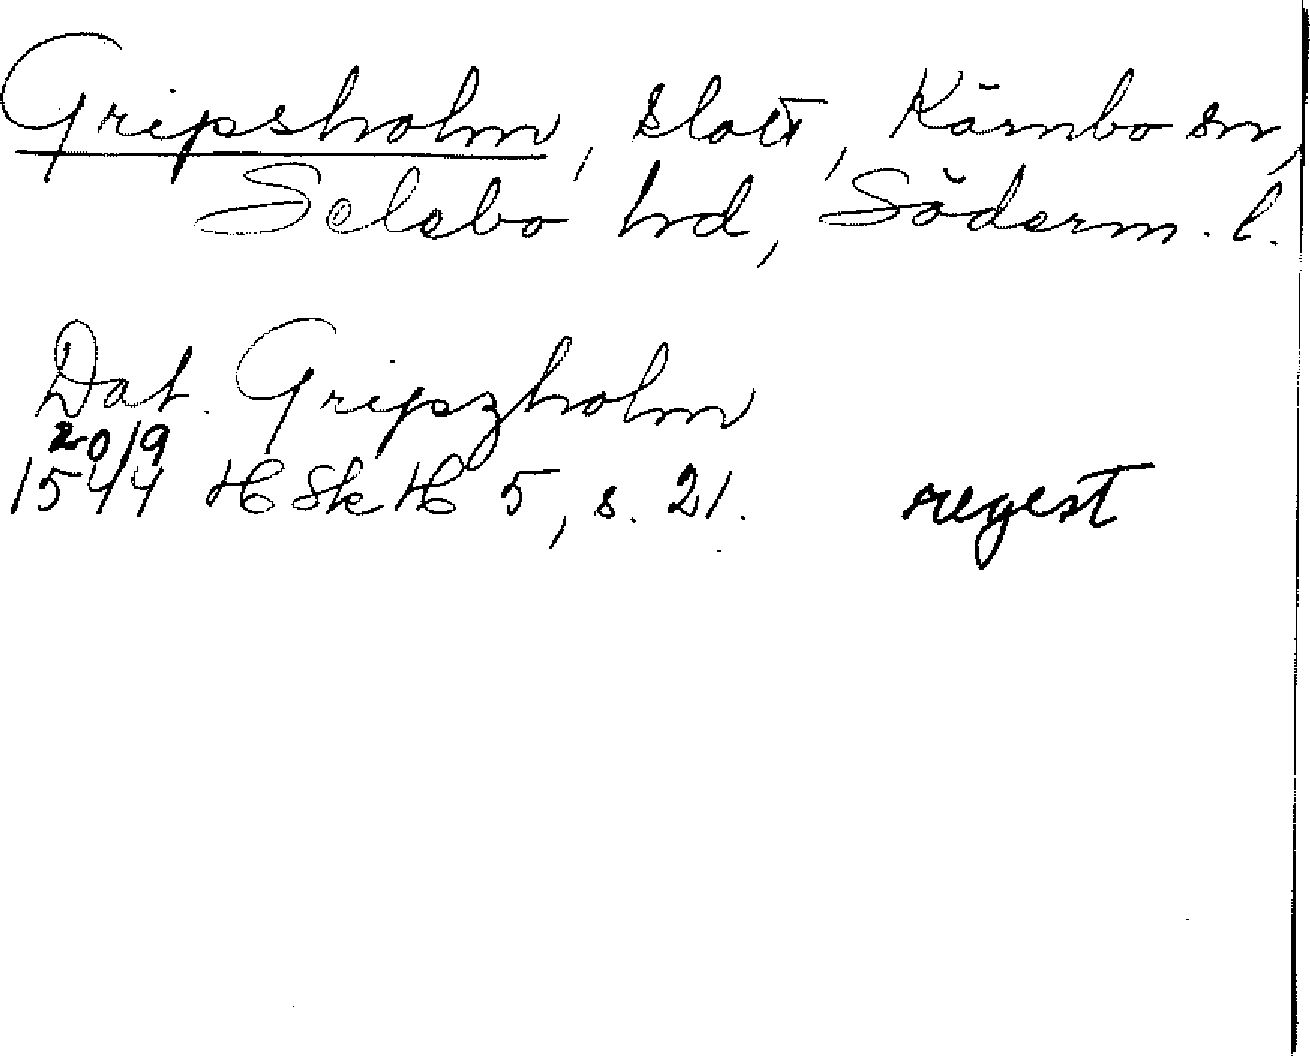 Gripsholm, slott, Kärnbo sn,
Selebo hd, Söderm. l.
Dat. Gripzholm
20/9
1544 HSkH 5, s. 21. regest